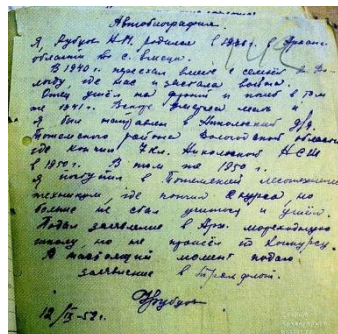 Автобиография.
Я, Рубцов Н.М. родился в 1936 г. в Арханг.
области
В 1940 г. приехал вместе с семьёй в Во-
логду, где нас и застала война.
Отец ушёл на фронт и погиб в том
же 1941 г. Вскоре умерла мать и
я был направлен в Никольский д/д
Тотемского района Вологодской области
где кончил 7 кл. Никольской НСШ
в 1950 г. В том же 1950 г.
Я поступил в Тотемский лесотехнич.
техникум, где кончил 2 курса, но
больше не стал учиться и ушёл.
Подал заявление в Арх. мореходную
школу, но не прошёл по конкурсу.
В настоящий момент подаю
заявление в Тралфлот.
Н Рубцов
12/IX-52 г.